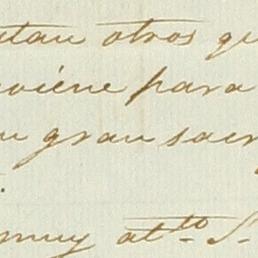 otros qu
viene para
gran sacr
muy att.to S.